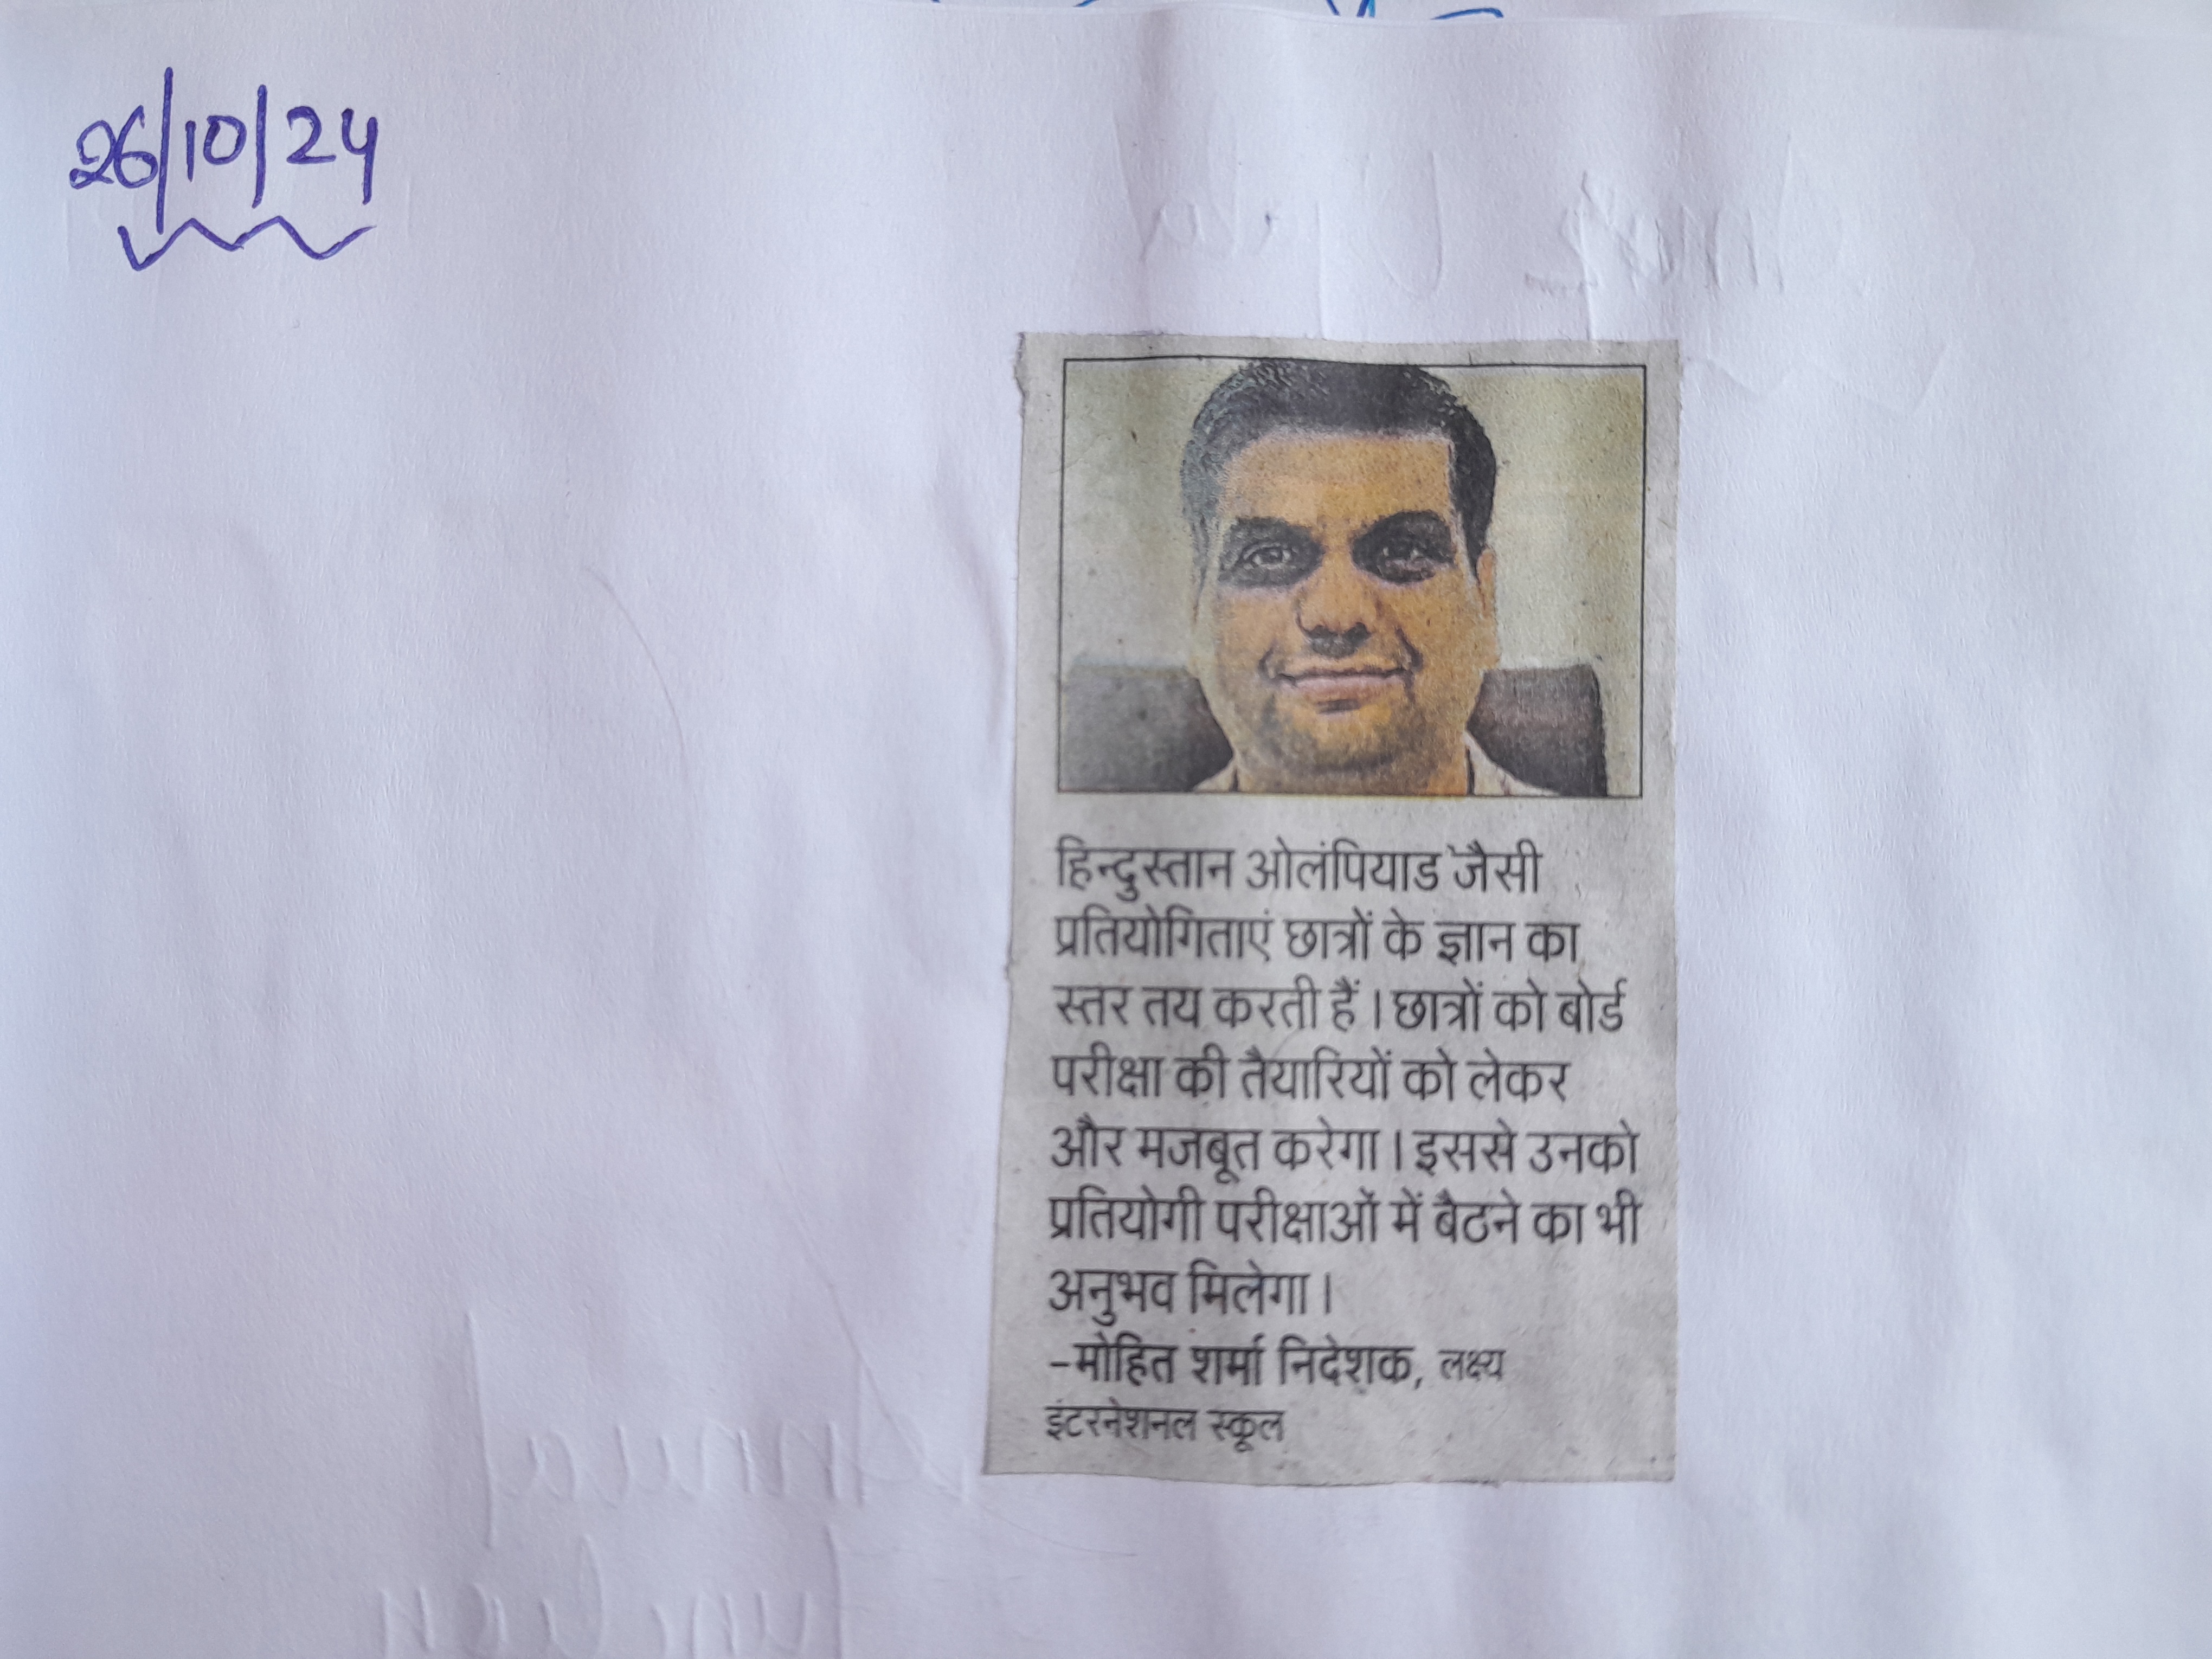 26/10/24
हिन्दुस्तान ओलंपियाड जैसी
प्रतियोगिताएं छात्रों के ज्ञान का
स्तर तय करती हैं । छात्रों को बोर्ड
परीक्षा की तैयारियों को लेकर
और मजबूत करेगा । इससे उनको
प्रतियोगी परीक्षाओं में बैठने का भी
अनुभव मिलेगा ।
-मोहित शर्मा निदेशक, लक्ष्य
इंटरनेशनल स्कूल